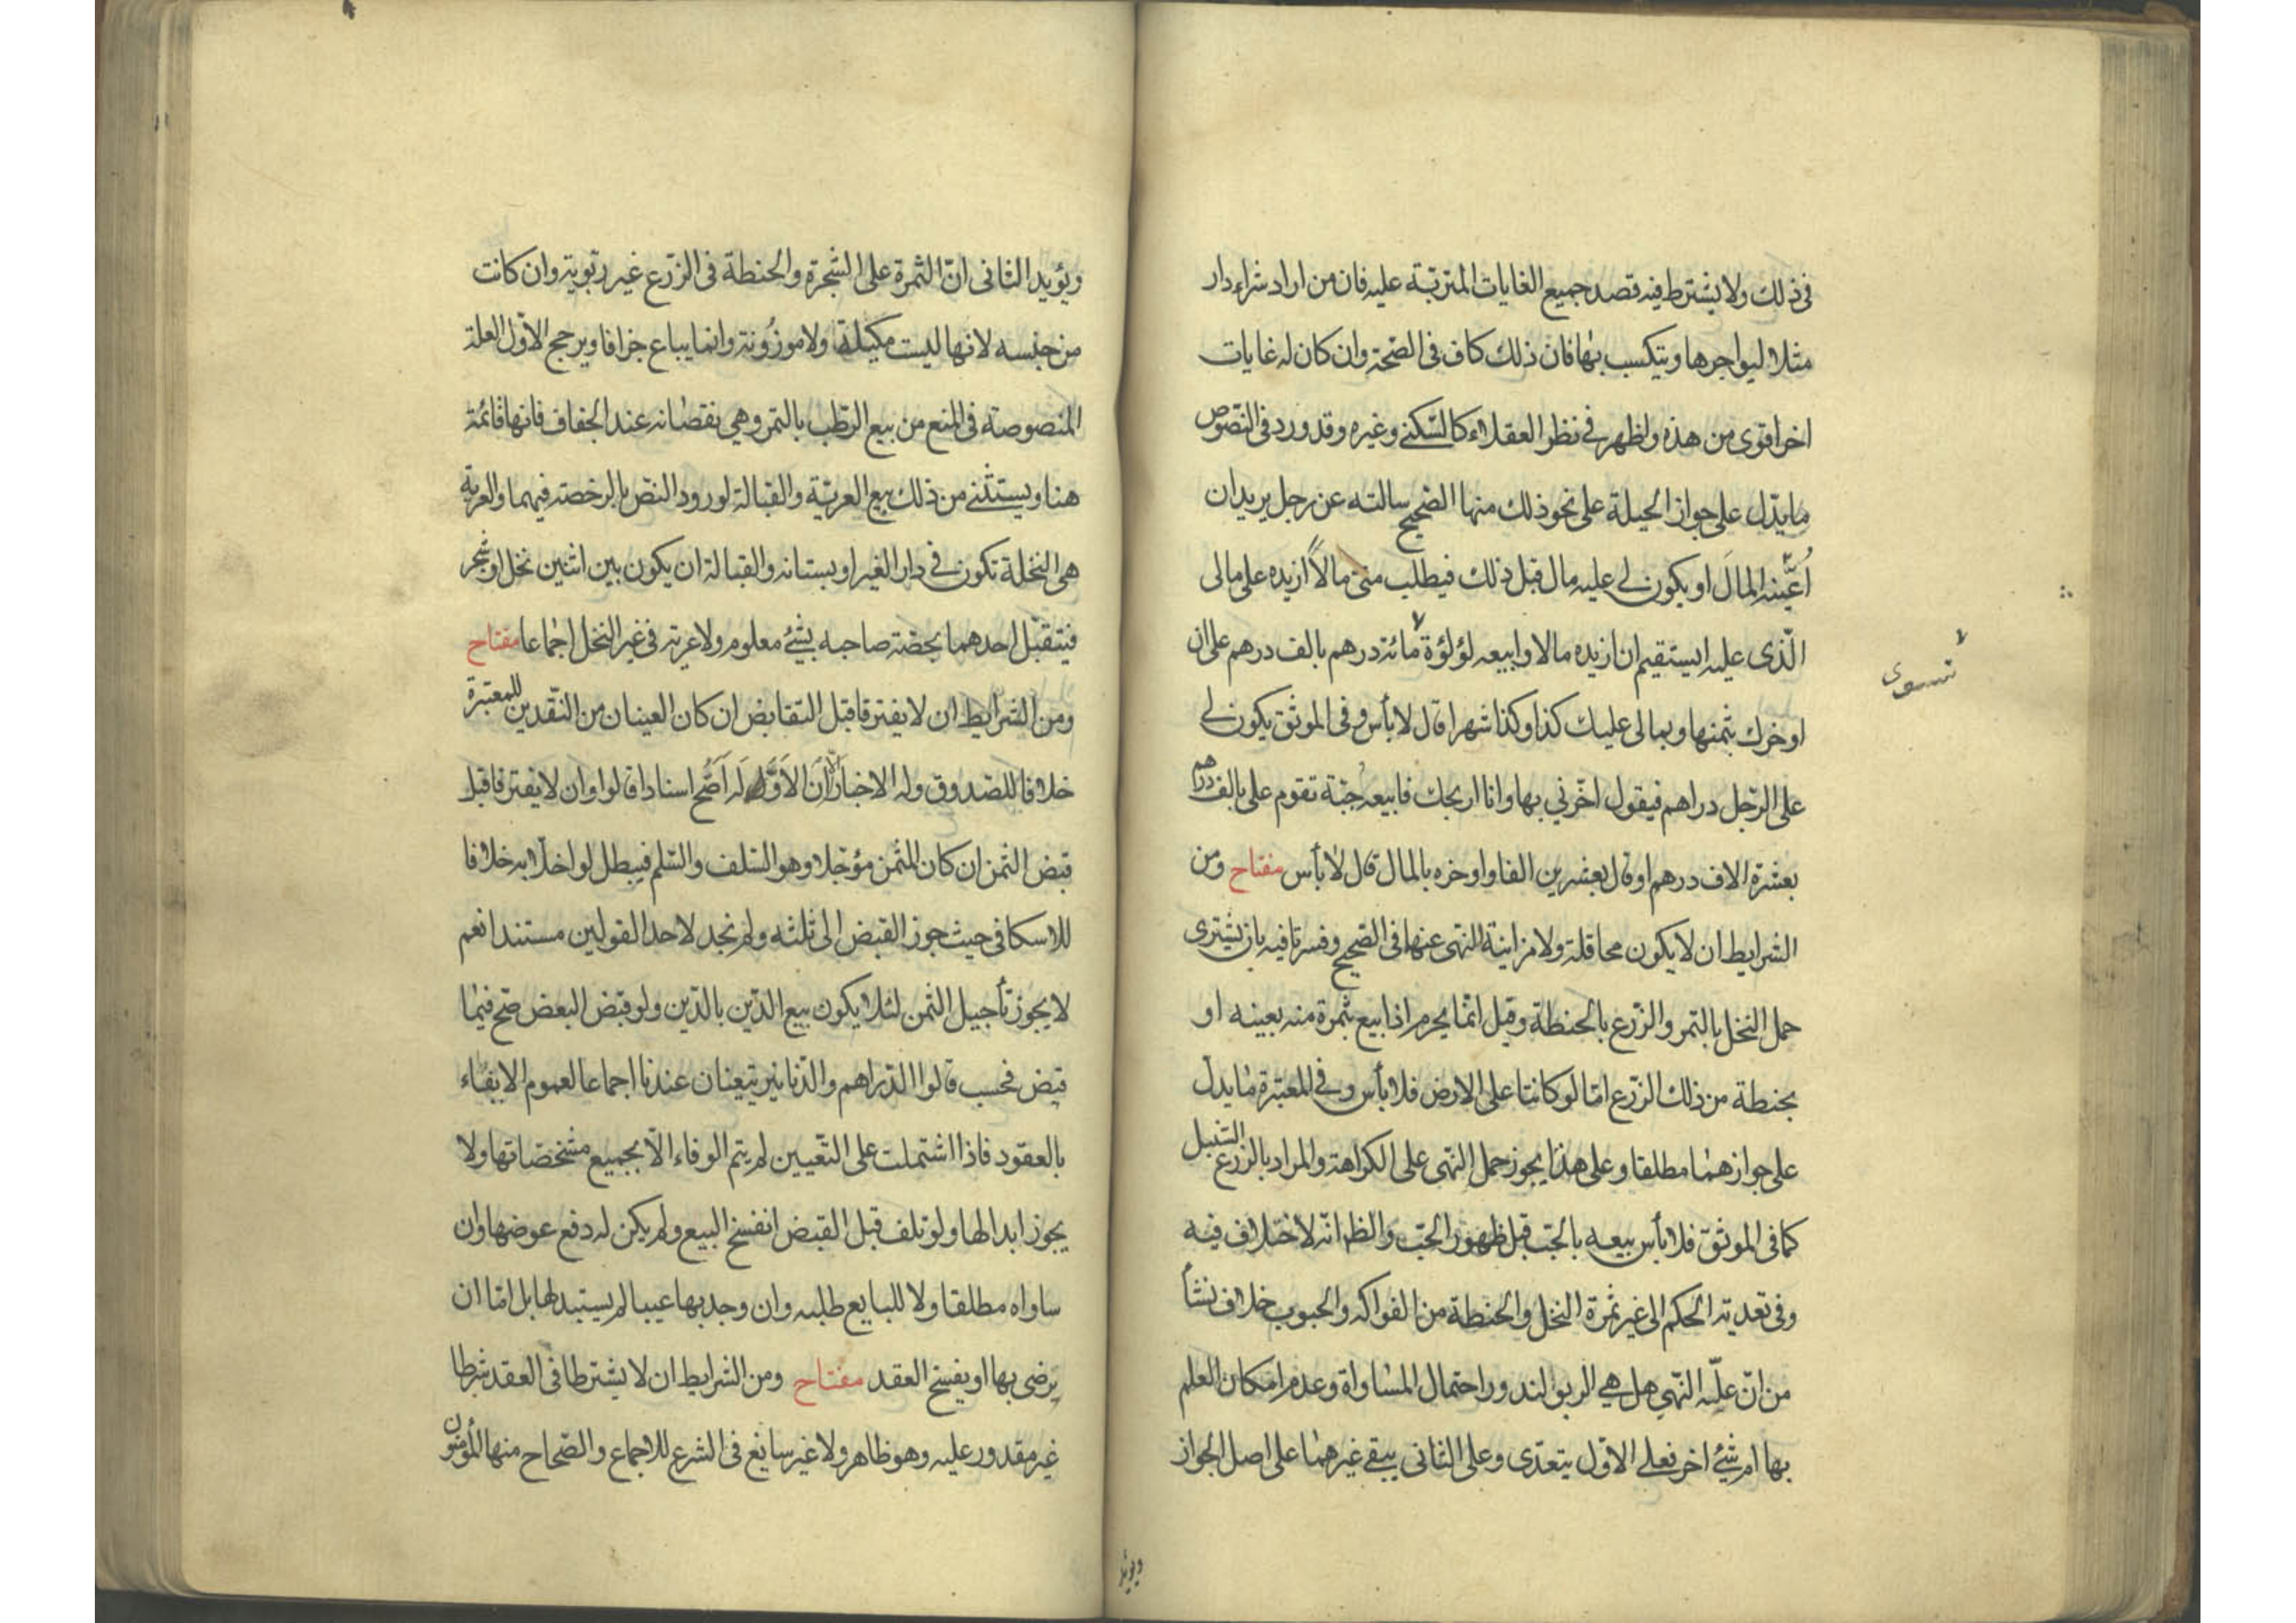 فى ذلك ولا يشترط فيه قصد جميع الغايات المترتبة عليه فان من اراد شراء دار
مثلا ليواجرها ويتكسب بها فان ذلك كاف فى الصّحة وان كان له غايات
اخر اقوى من هذه واظهر فى نظر العقلاء كالسّكنى وغيره وقد ورد فى النّصوص
ما يدّل على جواز الحيلة على نحو ذلك منها الصّحيح سالته عن رجل يريد ان
اُعيّنه المالَ او يكون لى عليه مال قبل ذلك فيطلب منّى مالاً ازيده على مالى
الّذى عليه ايستقيم ان ازيده مالا وابيعه لؤلؤة مائة درهم بالف درهم على ان
تسوى
اوخرك بثمنها وبمالى عليك كذا وكذا شهرا قال لا بأس وفى الموثق يكون لى
على الرّجل دراهم فيقول اخّرنى بها وانا اربحك فابيعه جبّة تقوم على بالف درهم
بعشرة الاف درهم او قال بعشرين الفا واوخره بالمال قال لا بأس مفتاح ومن
الشرايط ان لا يكون محاقلة ولا مزابنة للنهى عنها فى الصّحيح وفسرتا فيه بان يشترى
حمل النخل بالتمر والزّرع بالحنطة وقيل انّما يحرم اذا بيع بثمرة منه بعينه او
بحنطة من ذلك الزّرع امّا لو كانتا على الارض فلا بأس وفى المعتبرة ما يدلّ
على جوازهما مطلقا وعلى هذا يجوز حمل النّهى على الكراهة والمراد بالزّرع السّنبل
كما فى الموثق فلا بأس ببيعه بالحبّ قبل ظهور الحبّ والظ انّه لا خلاف فيه
وفى تعدية الحكم الى غير ثمرة النخل والحنطة من الفواكه والحبوب خلاف نشأ
من انّ علّة النّهى هل هى الربوا لندور احتمال المساواة وعدم امكان العلم
بها ام شئ اخر فعلى الاوّل يتعدّى وعلى الثانى يبقى غيرهما على اصل الجواز
ويؤيد
ويؤيد الثانى انّ الثمرة على الشجرة والحنطة فى الزّرع غير ربّوية وان كانت
من جنسه لانها ليست مكيلة ولا موزُونة وانما يباع جزافا ويرجح الاوّل العلة
المنصوصة فى المنع من بيع الرّطب بالتمر وهى نقصانه عند الجفاف فانها قائمة
هنا ويستثنى من ذلك بيع العريّة والقبالة لورود النصّ بالرخصة فيهما والعرية
هى النخلة تكون فى دار الغير او بستانه والقبالة ان يكون بين اثنين نخل او شجر
فيتقبّل احدهما بحصّة صاحبه بشئ معلوم ولا عرية فى غير النخل اجماعا مفتاح
ومن الشرايط ان لا يفترقا قبل التقابض ان كان العينان من النّقدين للمعتبرة
خلافا للصّدوق وله الاخبار الا اَنَّ الاَوّل لَه اَصَحّ اسنادا قالوا وان لا يفترقا قبل
قبض الثمن ان كان المثمن مؤجّلا وهو السّلف والسّلم فيبطل لو اخلّا به خلافا
للاسكافى حيث جوز القبض الى ثلثه ولم نجد لاحد القولين مستندا نعم
لا يجوز تأجيل الثّمن لئلا يكون بيع الدّين بالدّين ولو قبض البعض صّح فيما
قبض فحسب قالوا الدّراهم والدّنانير يتعينان عندنا اجماعا لعموم الايفاء
بالعقود فاذا اشتملت على التّعيين لم يتم الوفاء الّا بجميع مشخصاتها ولا
يجوز ابدالها ولو تلف قبل القبض انفسخ البيع ولم يكن له دفع عوضها وان
ساواه مطلقا ولا للبايع طلبه وان وجد بها عيبا لم يستبدلها بل امّا ان
يرضى بها او يفسخ العقد مفتاح ومن الشرايط ان لا يشترطا فى العقد شرطا
غير مقدور عليه وهو ظاهر ولا غير سايغ فى الشرع للاجماع والصّحاح منها المؤمنون